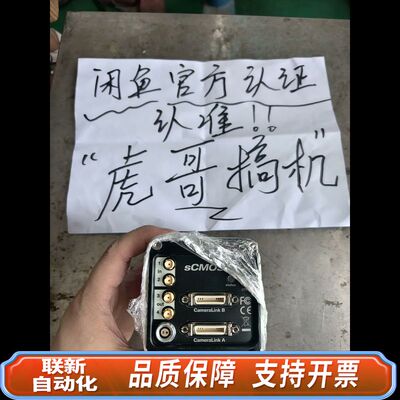 闲鱼官方认证
认准!!
“虎哥搞机”
sCMOS
in
out
CameraLink B
CameraLink A
FC
CE
联新
自动化
品质保障 支持开票